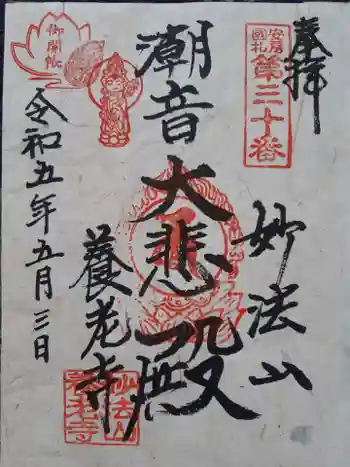 奉拝
安房
國札
第三十番
妙法山
潮音大悲殿
養老寺
令和五年五月三日
御開帳
妙法山
養老寺